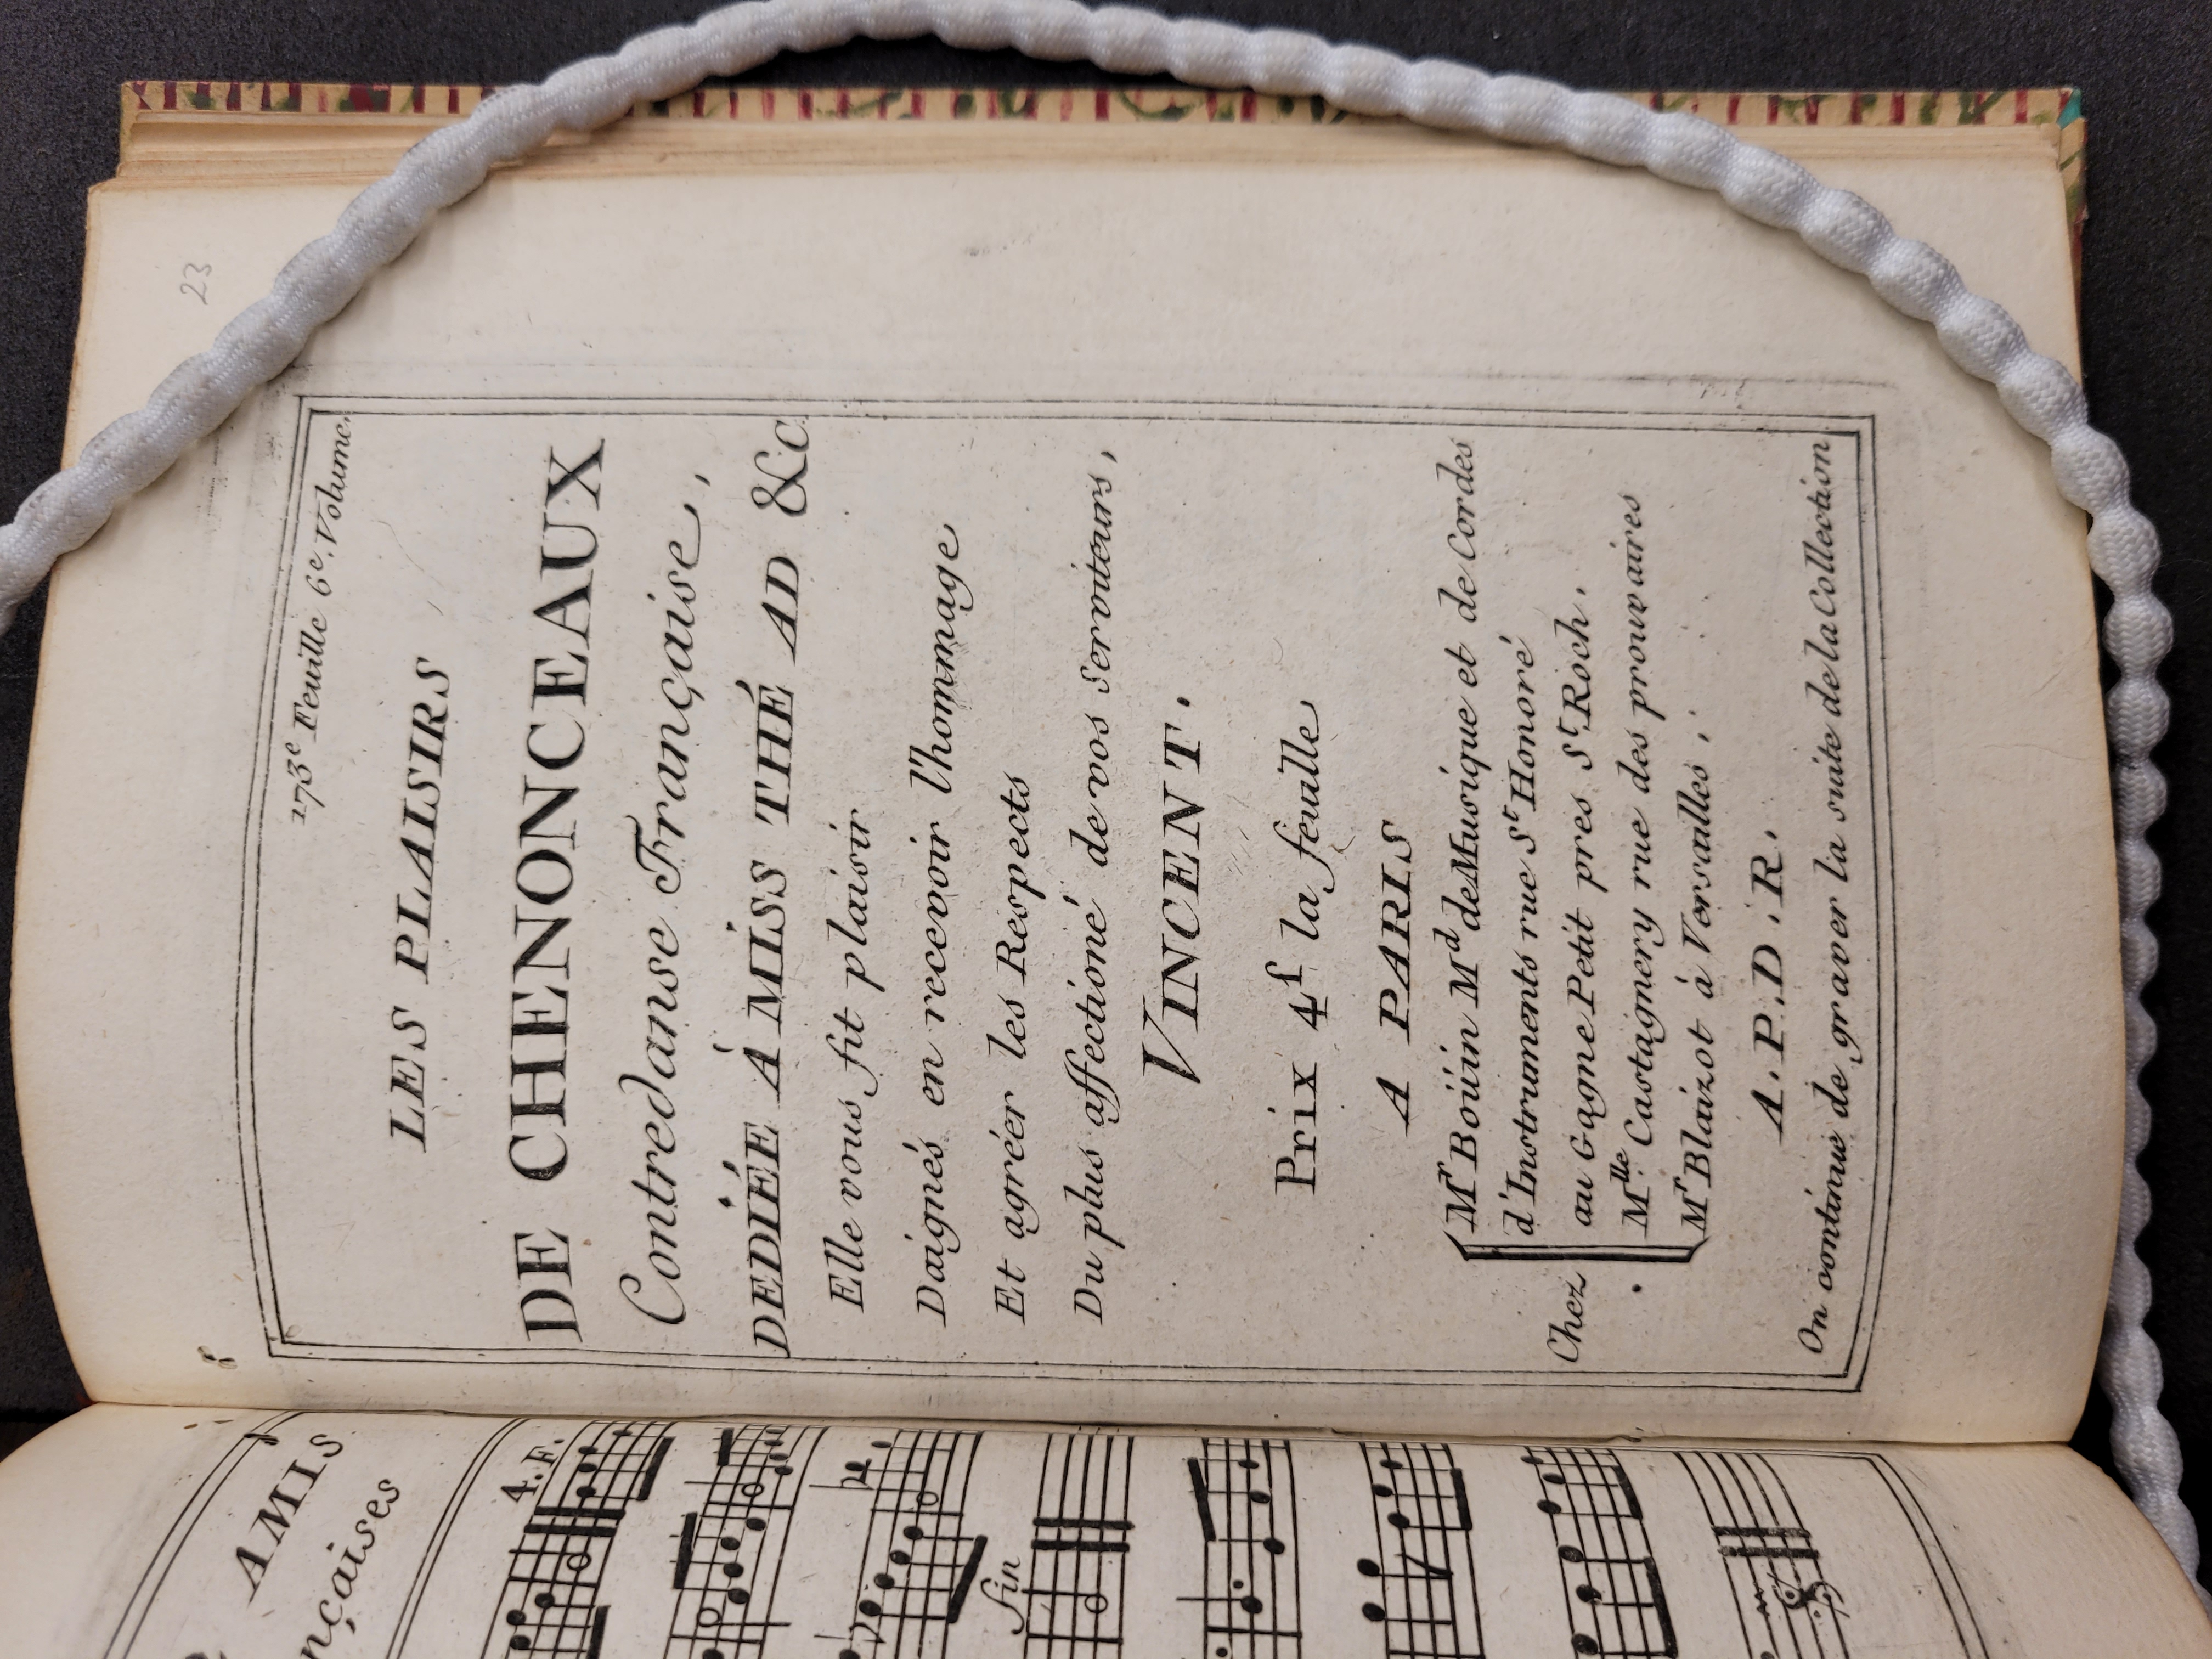 23
173e Feuille 6e. Volume.
LES PLAISIRS
DE CHENONCEAUX
Contredanse Française,
DEDIÉE À MISS THÉ AD &c.
Elle vous fit plaisir
Daignés en recevoir l'hommage
Et agréer les Respects
Du plus affectioné de vos Serviteurs,
VINCENT.
Prix 4f la feuille
A PARIS
Chez
Mr Boüin Md de Musique et de Cordes
d'Instruments rue St Honoré
au Gagne Petit pres St Roch.
Mlle Castagnery rue des prouvaires
Mr Blaizot à Versailles.
A.P.D.R.
On continue de graver la suite de la Collection
AMIS
nçaises
4.F.
fin